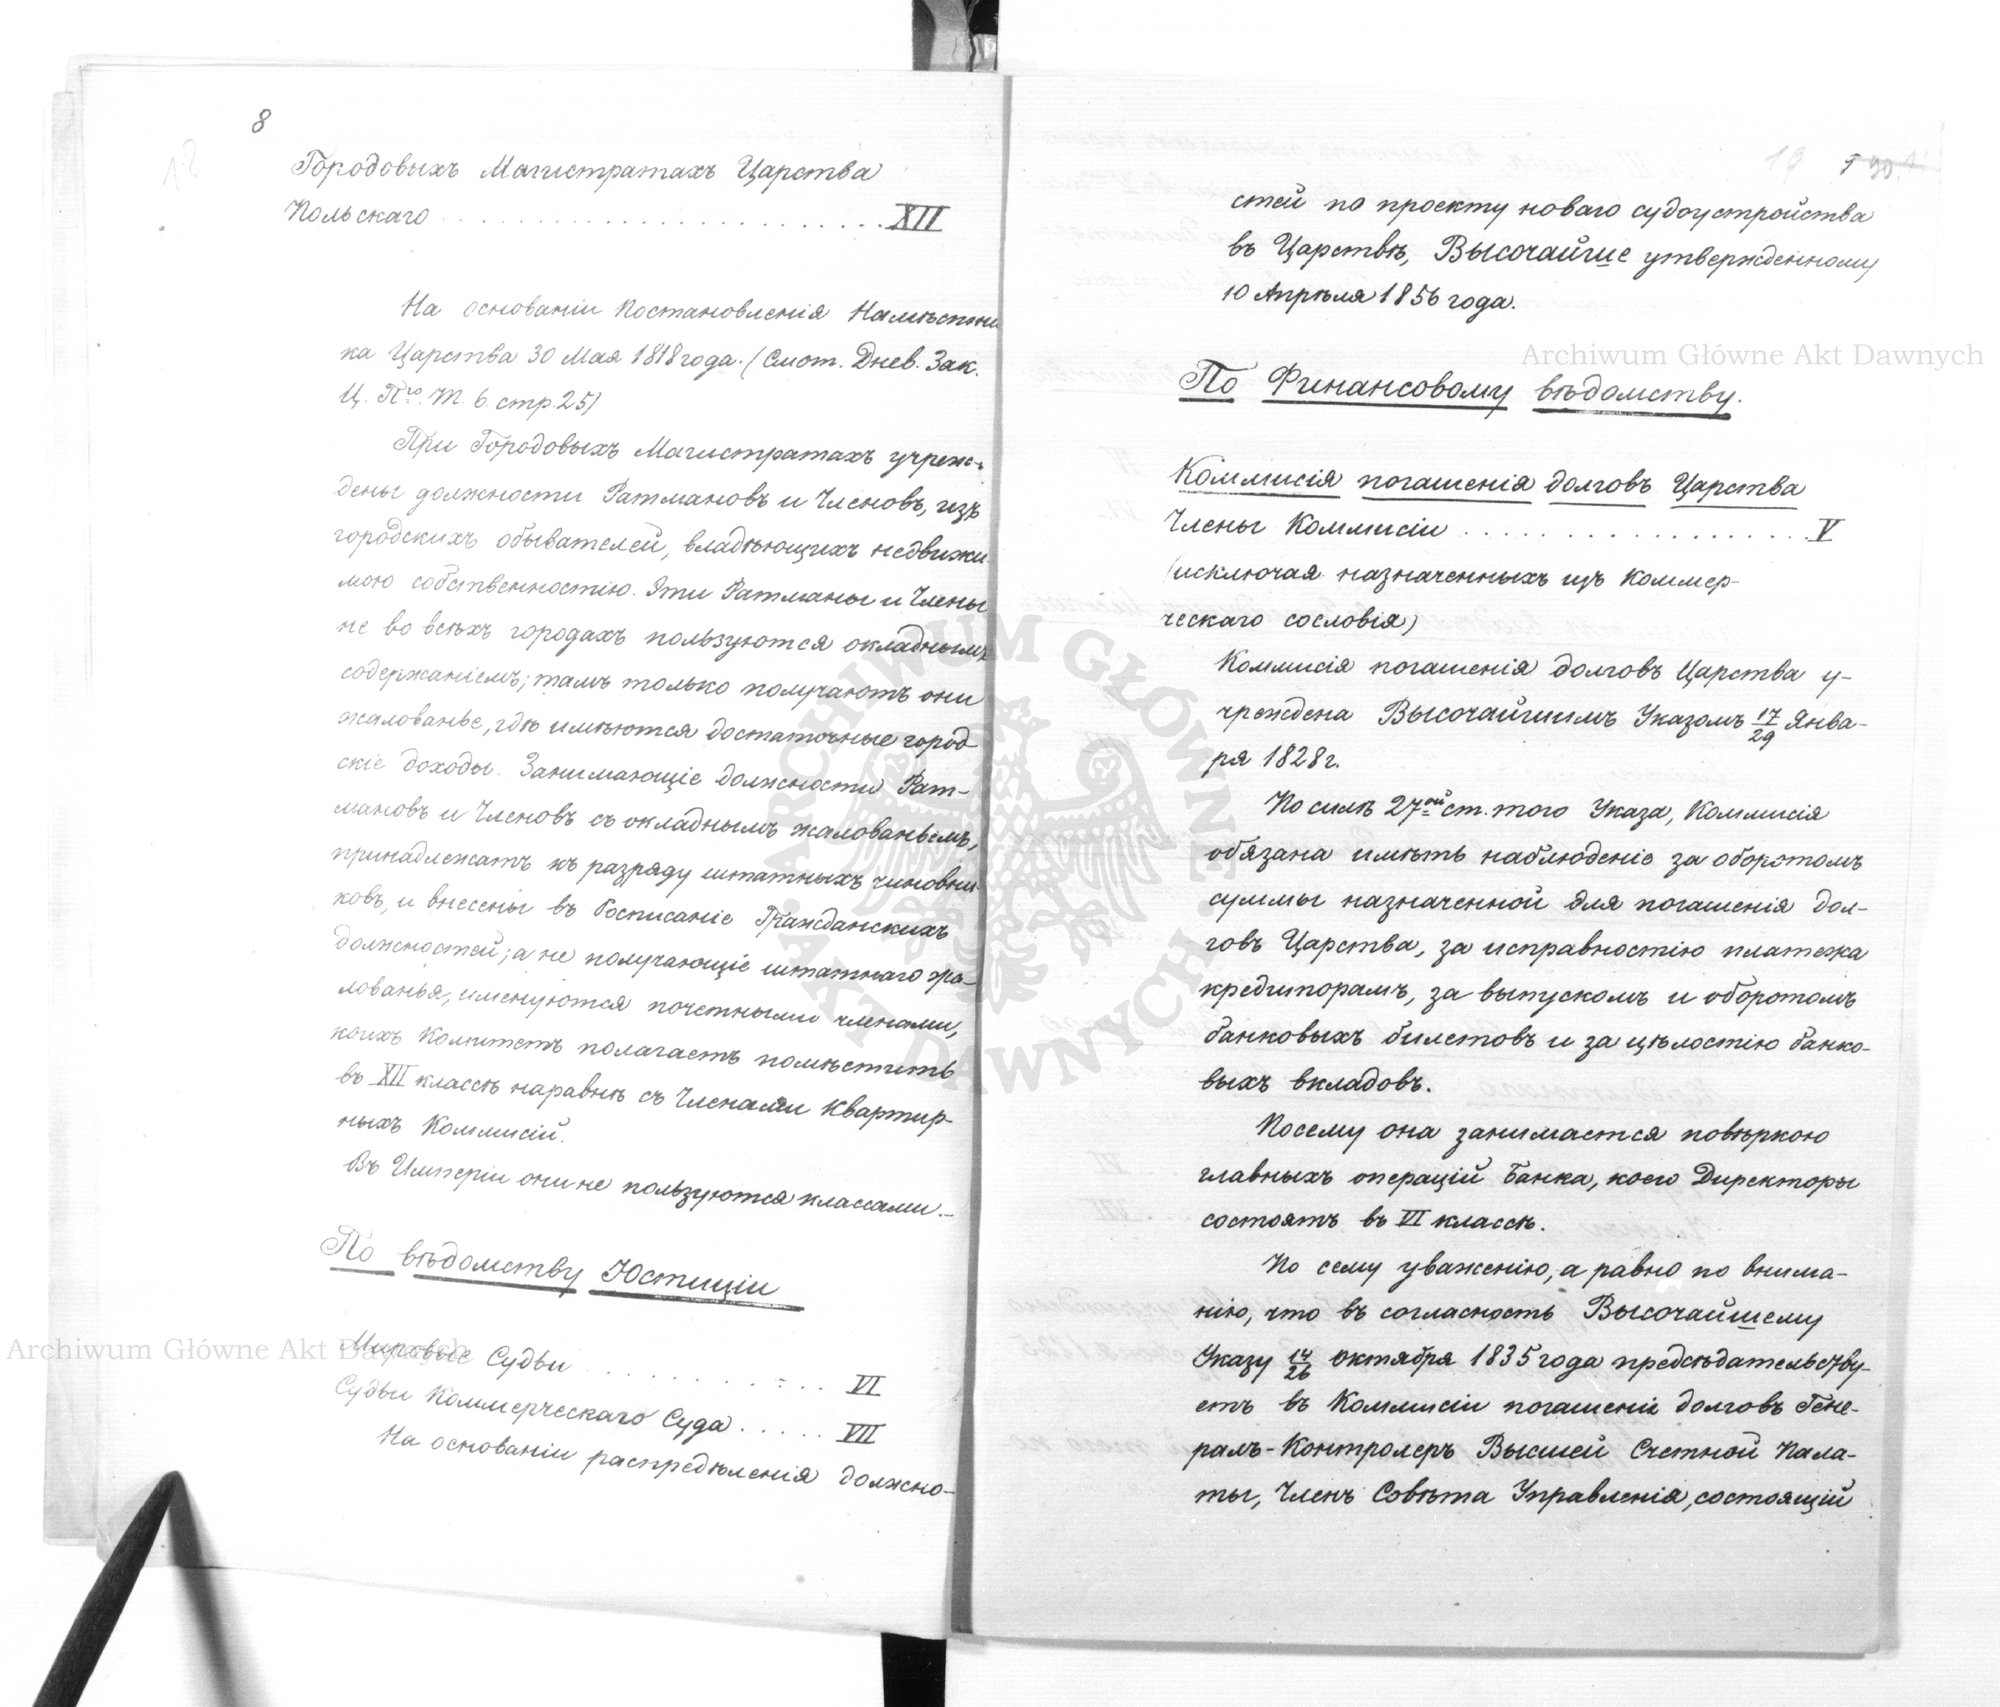 8
18
Городовыхъ Магистратахъ Царства
Польскаго . . . . . . . . . . . . . . . . . . . . XII
На основаніи Постановленія Намѣстни
ка Царства 30 Мая 1818 года. (Смот. Днев. Зак.
Ц. Пго. Т. 6. стр. 25)
При Городовыхъ Магистратахъ учреж-
дены должности Ратмановъ и Членовъ, изъ
городскихъ обывателей, владѣющихъ недвижи
мою собственностію. Эти Ратманы и Члены
не во всѣхъ городахъ пользуются окладнымъ
содержаніемъ; тамъ только получаютъ они
жалованье, гдѣ имѣются достаточные город-
скіе доходы. Занимающіе должности Рат-
мановъ и Членовъ съ окладнымъ жалованьемъ,
принадлежатъ къ разряду штатныхъ чиновни-
ковъ, и внесены въ Росписаніе Гражданскихъ
должностей; а не получающіе штатнаго жа-
лованья, именуются почетными членами,
коихъ Комитетъ полагаетъ помѣстить
въ XII классѣ наравнѣ съ Членами Квартир-
ныхъ Коммисій.
Въ Имперіи они не пользуются классами.-
По вѣдомству Юстиціи
Мировые Судьи . . . . . . . . . . . VI
Судьи Коммерческаго Суда . . . . . VII
На основаніи распредѣленія должно-
19
стей по проекту новаго судоустройства
въ Царствѣ, Высочайше утвержденному
10 Апрѣля 1856 года.
По Финансовому вѣдомству.
Коммисія погашенія долговъ Царства
Члены Коммисіи . . . . . . . . . . . . . . . . . . V
(исключая назначенныхъ изъ коммер-
ческаго сословія)
Коммисія погашенія долговъ Царства у-
чреждена Высочайшимъ Указомъ 17/29 Янва-
ря 1828 г.
По силѣ 27ой ст. того Указа, Коммисія
обязана имѣть наблюденіе за оборотомъ
суммы назначенной для погашенія дол-
говъ Царства, за исправностію платежа
кредиторамъ, за выпускомъ и оборотомъ
банковыхъ билетовъ и за цѣлостію банко-
выхъ вкладовъ.
Посему она занимается повѣркою
главныхъ операцій Банка, коего Директоры
состоятъ въ VI классѣ.
По сему уваженію, а равно по внима-
нію, что въ согласность Высочайшему
Указу 14/26 октября 1835 года предсѣдательству-
етъ въ Коммисіи погашенія долговъ Гене-
ралъ-Контролеръ Высшей Счетной Пала-
ты, Членъ Совѣта Управленія, состоящій
Archiwum Główne Akt Dawnych
Archiwum Główne Akt Dawnych
ARCHIWUM GŁÓWNE AKT DAWNYCH